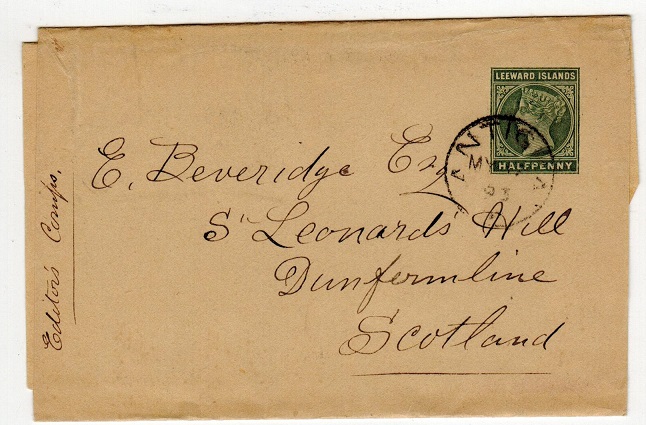 LEEWARD ISLANDS
HALFPENNY
ANTIGUA
MY
93
E. Beveridge Esq
St Leonards Hill
Dunfermline
Scotland
Editor's Comps.